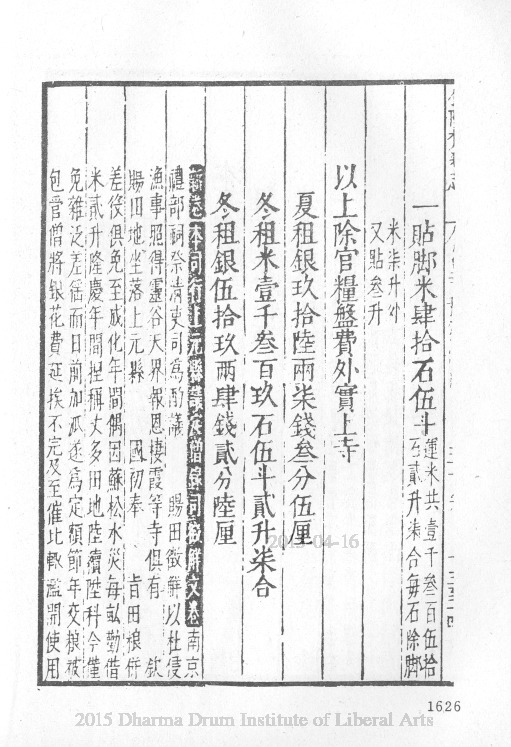 一貼脚米肆拾石伍斗運米共壹千叁百伍拾
石貳升柒合每石除脚
米柒升外
又貼叁升
以上除官糧盤費外實上寺
夏租銀玖拾陸兩柒錢叁分伍厘
冬租米壹千叁百玖石伍斗貳升柒合
冬租銀伍拾玖兩肆錢貳分陸厘
卷本司行上元縣議處僧錄司徵解文卷南京
禮部祠祭清吏司爲酌議 賜田徵解以杜侵
漁事照得靈谷天界報恩棲霞等寺俱有 欽
賜田地坐落上元縣 國初奉 旨田粮併
差役俱免至成化年間偶因蘇松水災每畝勸借
米貳升隆慶年間捏稱丈多田地陸續陞科今僅
免雜泛差徭而日前加派遂爲定額節年交粮被
包管僧將銀花費延挨不完及至催比輙濫開使用
2015-04-16
1626
2015 Dharma Drum Institute of Liberal Arts